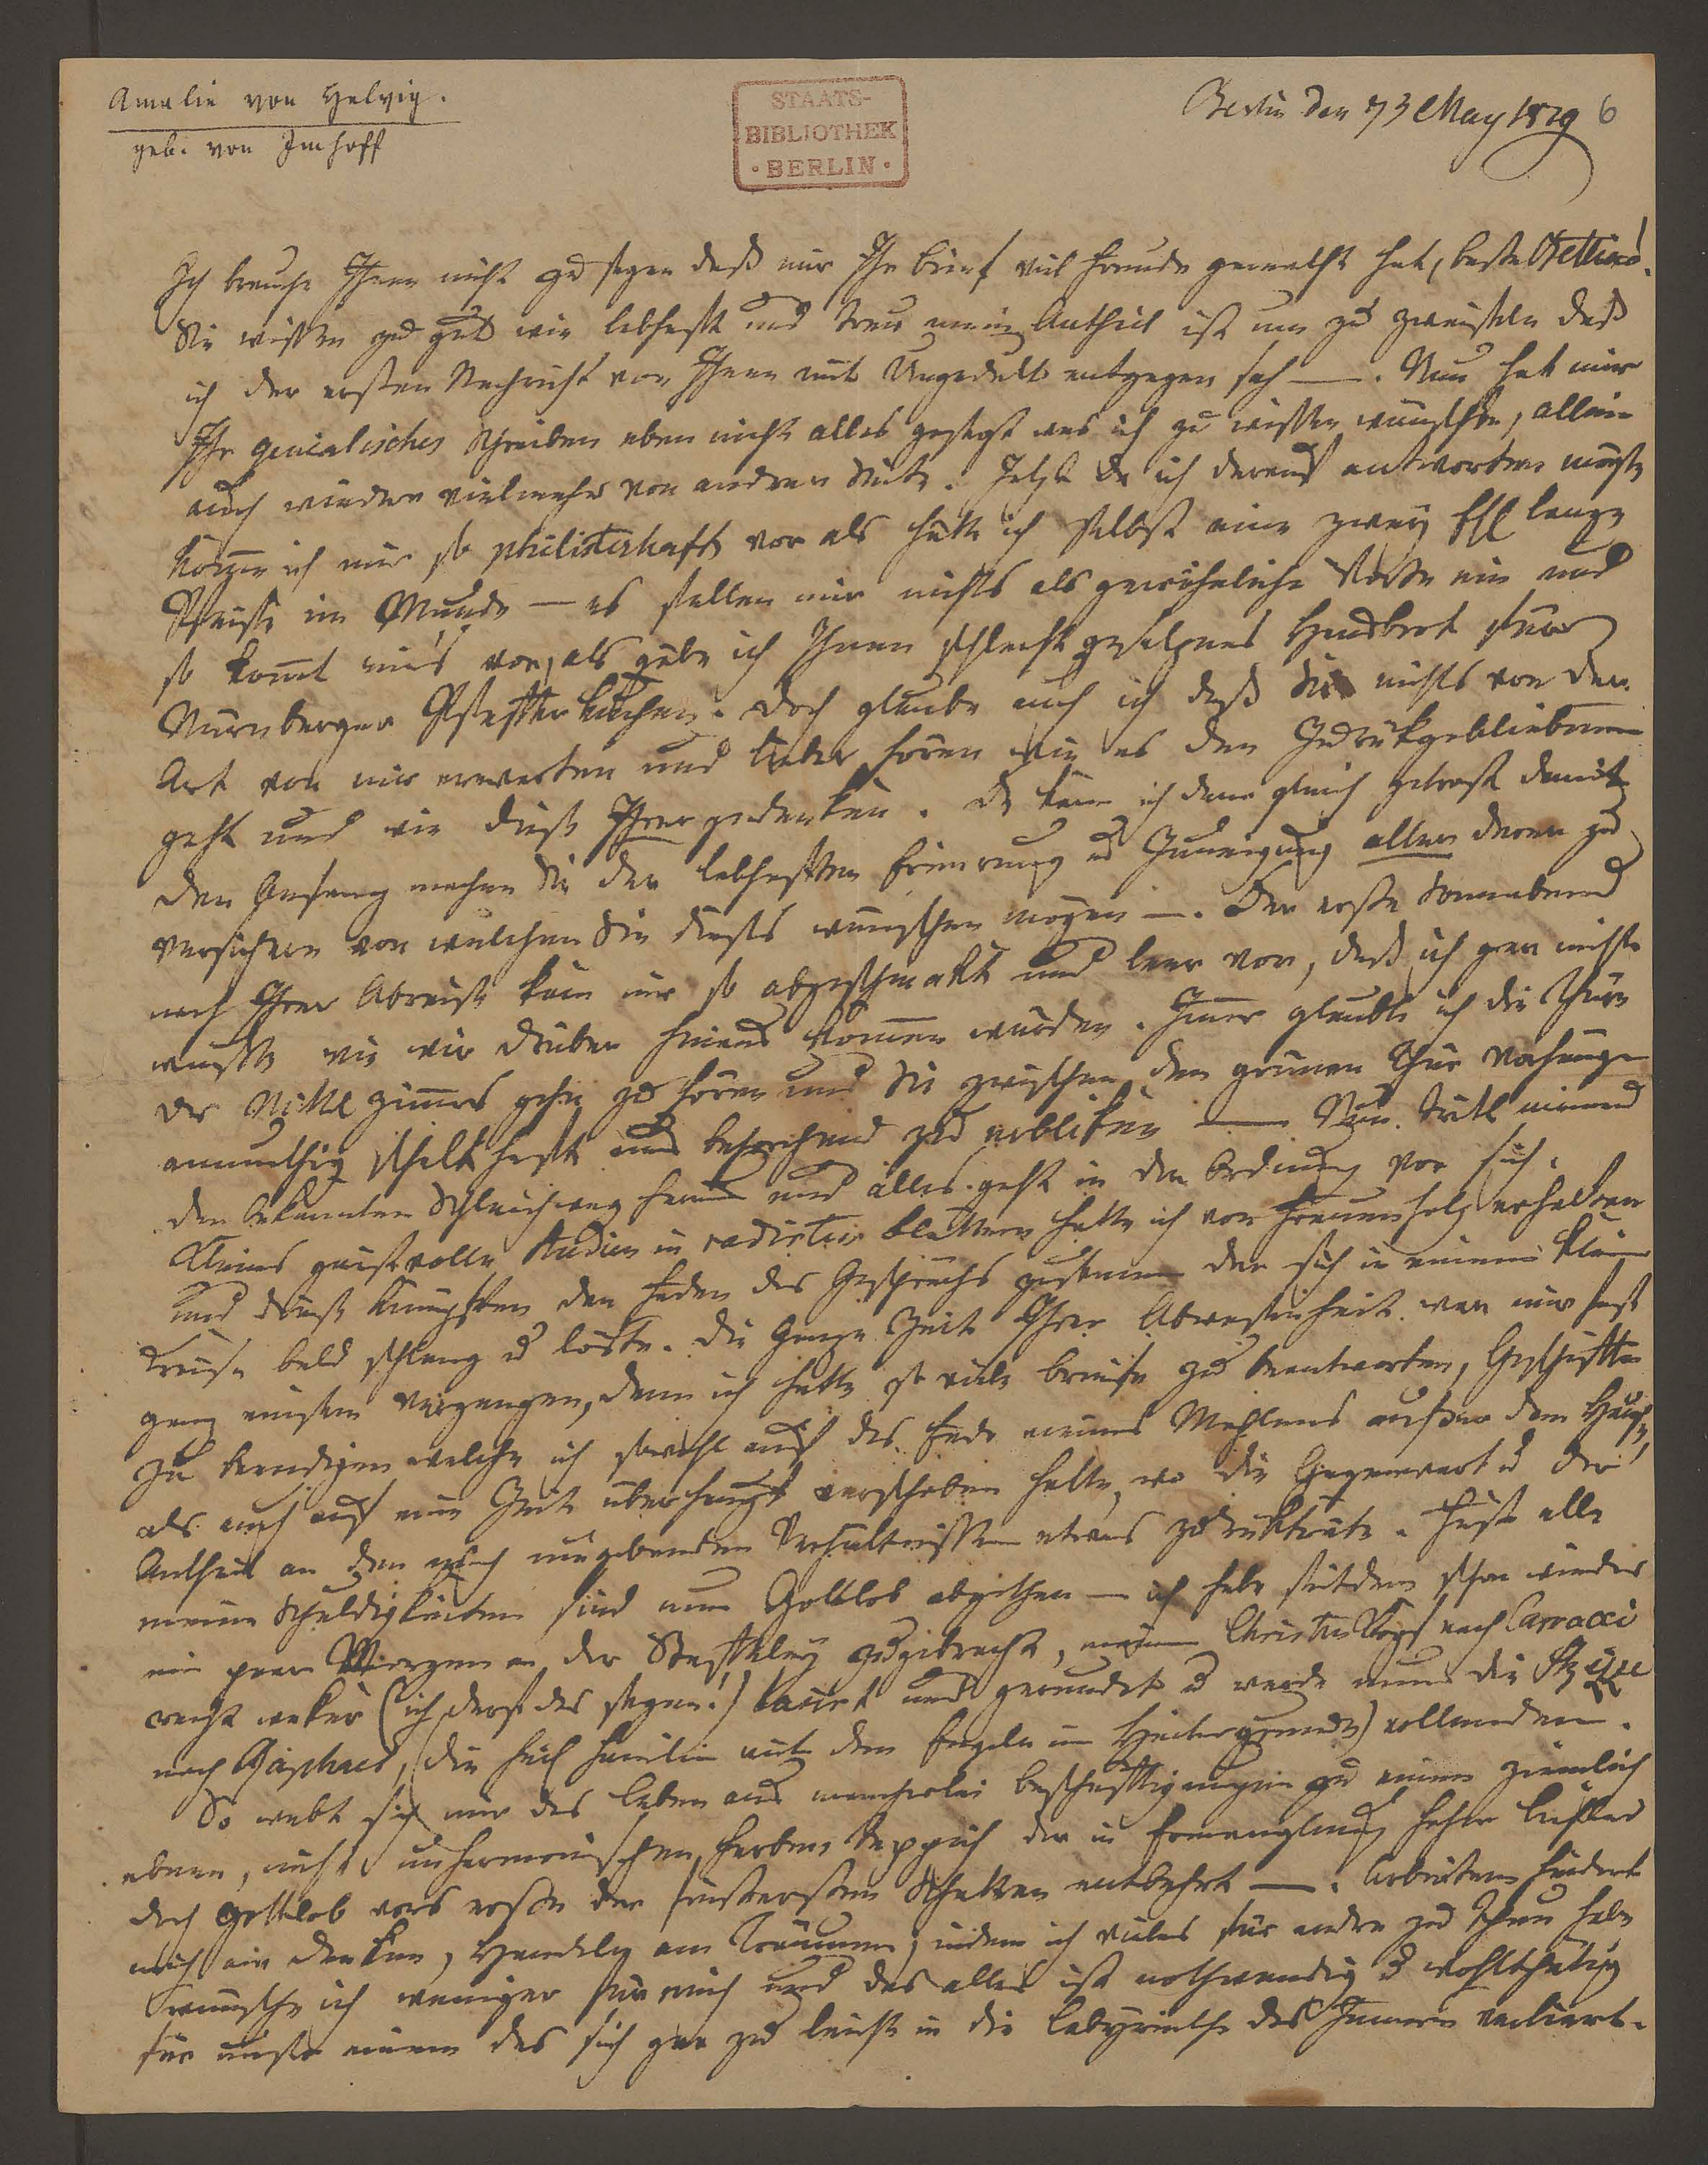 Amalie von Helvig.
geb. von Imhoff
STAATS-
BIBLIOTHEK
· BERLIN ·
Berlin den 73 May 1819 6
Ich brauche Ihnen nicht zu sagen daß mir Ihr Brief viel Freude gemacht hat, beste Bettina!
Sie wissen zu gut wie lebhaft und treu mein Antheil ist um zu zweifeln daß
ich der ersten Nachricht von Ihnen mit Ungedult entgegen sah —. Nun hat mir
Ihr genialisches Schreiben eben nicht alles gesagt was ich zu wissen wünschte, allein
auch wieder vielmehr von andrer Seite. Jetzt da ich darauf antworten müßte
komme ich mir so philisterhaft vor als hätte ich selbst eine zwey Ell lange
Pfeiffe im Munde — es fallen mir nichts als gewöhnliche Worte ein und
so komt mir's vor, als gäbe ich Ihnen schlecht gesalznes Hausbrot für
Nürnberger Pfefferkuchen. Doch glaube auch ich daß Sie nichts von der
Art von mir erwarten und lieber hören wie es den Zurükgebliebenen
geht und wie diese Ihrer gedenken. Da kann ich denn gleich getrost damit
den Anfang machen Sie der lebhaftesten Erinerung u Zuneigung aller derer zu
versichern von welchen Sie dieses wünschen mögen —. Der erste Sonnabend
nach Ihrer Abreise kam mir so abgeschmakt und leer vor, daß ich gar nicht
wußte wie wir drüber hinaus kommen würden. Immer glaubte ich die Thüre
des Mittelzimmers gehn zu hören und Sie zwischen den grünen Thür Vorhängen
anmuthig schalkhaft uns behorchend zu erbliken — Nun tritt niemand
den bekannten Schleichweg herein und alles geht in der Ordnung vor sich.
Kleins geistvolle Studien in radirten Blättern hatte ich von Frauenholz erhalten
und diese knüpften den Faden des Gesprächs zusammen der sich in einem kleinen
Kreise bald schlang u löste. Die ganze Zeit Ihrer Abwesenheit war mir fast
ganz einsam vergangen, denn ich hatte so viele Briefe zu beantworten, Geschäfte
zu beendigen welche ich sowohl auf das Ende meines Mahlens außer dem Hause,
als auch auf eine Zeit überhaupt verschoben hatte, wo die Gegenwart u der
Antheil an den mich umgebenden Verhältnissen etwas zurükträte. Fast alle
meine Schuldigkeiten sind nun Gottlob abgethan — ich habe seitdem schon wieder
ein paar Morgen an der Staffeley zugebracht, meinen Christus Kopf nach Carracci
recht waker (ich darf das sagen!) lasirt und gerundet u werde nun die Skizze
nach Raphael, (die heil Familie mit den Engeln im Hintergrunde) vollenden.
So webt sich mir das Leben aus mancherlei Beschäftigungen zu einem ziemlich
ebnen, nicht unharmonischen Farben Teppich der in Ermanglung hoher Lichter
doch Gottlob vors erste der finstersten Schatten entbehrt —. Arbeiten hindert
mich am Denken, Handeln am Träumen, indem ich vieles für andre zu thun habe
wünsche ich weniger für mich und das alles ist nothwendig u wohlthätig
für unser einen das sich gar zu leicht in die Labyrinthe des Innern verliert.